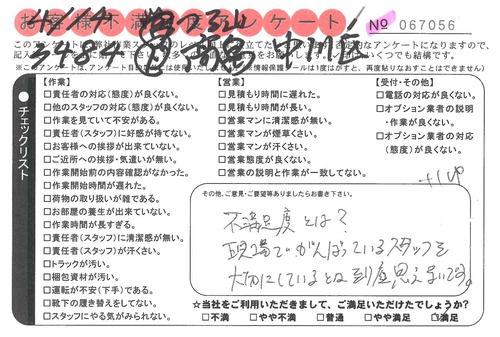 お客様不満足度アンケート
No 067056
【作業】
□責任者の対応(態度)が良くない。
□他のスタッフの対応(態度)が良くない。
□作業を見ていて不安がある。
□責任者(スタッフ)に好感が持てない。
□お客様への挨拶が出来ていない。
□ご近所への挨拶・気遣いが無い。
□作業開始前の内容確認がなかった。
□作業開始時間が遅れた。
□荷物の取り扱いが雑である。
□お部屋の養生が出来ていない。
□作業時間が長すぎる。
□責任者(スタッフ)に清潔感が無い。
□責任者(スタッフ)が汗くさい。
□トラックが汚い。
□梱包資材が汚い。
□運転が不安(下手)である。
□靴下の履き替えをしてない。
□スタッフにやる気がみられない。
チェックリスト
【営業】
□見積もり時間に遅れた。
□見積もり時間が長い。
□営業マンに清潔感が無い。
□営業マンが煙草くさい。
□営業マンが汗くさい。
□営業態度が良くない。
□営業の説明と作業が一致してない。
【受付・その他】
□電話の対応が良くない。
□オプション業者の説明
・作業が良くない。
□オプション業者の対応
(態度)が良くない。
+1UP
その他、ご意見・ご要望等ありましたらお書き下さい。
不満足度とは?
現場でがんばっているスタッフを
大切にしているとは到底思えないです。
☆当社をご利用いただきまして、ご満足いただけたでしょうか?
□不満 □やや不満 □普通 □やや満足 □満足